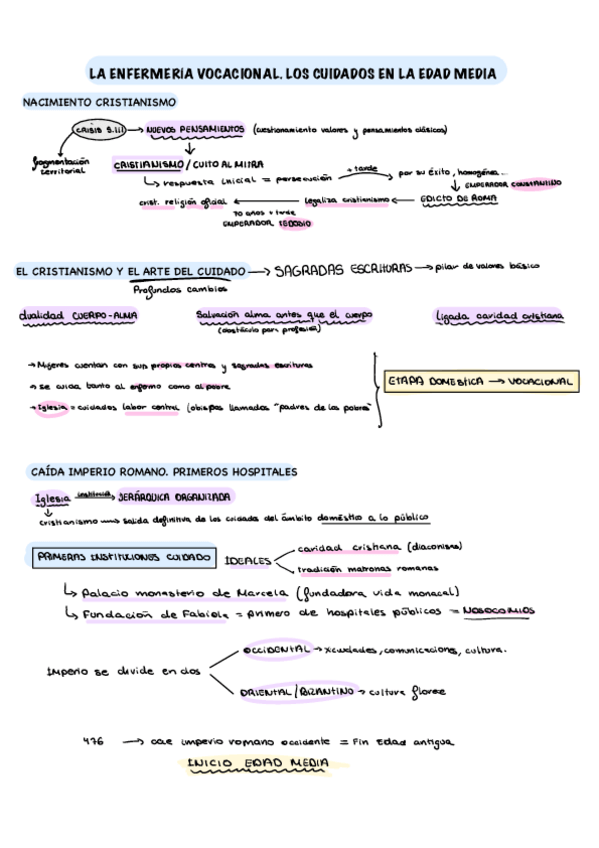 LA ENFERMERÍA VOCACIONAL. LOS CUIDADOS EN LA EDAD MEDIA
NACIMIENTO CRISTIANISMO
CRISIS S.III → NUEVOS PENSAMIENTOS (cuestionamiento valores y pensamientos clásicos)
fragmentación territorial
CRISTIANISMO / CULTO AL MITRA
respuesta inicial = persecución + tarde → por su éxito, homogénea...
EMPERADOR CONSTANTINO
crist. religión oficial ← legaliza cristianismo ← EDICTO DE ROMA
70 años + tarde
EMPERADOR TEDOSIO
EL CRISTIANISMO Y EL ARTE DEL CUIDADO → SAGRADAS ESCRITURAS → pilar de valores básico
Profundos cambios
dualidad CUERPO-ALMA
Salvación alma antes que el cuerpo
(obstáculo para profesión)
Ligada caridad cristiana
→ Mujeres cuentan con sus propios centros y sagradas escrituras
→ se cuida tanto al enfermo como al pobre
→ Iglesia = cuidados labor central (obispos llamados "padres de los pobres"
ETAPA DOMESTICA → VOCACIONAL
CAÍDA IMPERIO ROMANO. PRIMEROS HOSPITALES
Iglesia → JERÁRQUICA ORGANIZADA
cristianismo → salida definitiva de los cuidados del ámbito doméstico a lo público
PRIMERAS INSTITUCIONES CUIDADO
IDEALES
caridad cristiana (diaconisas)
tradición matronas romanas
Palacio monasterio de Marcela (fundadora vida monacal)
Fundación de Fabiola = primero de hospitales públicos = NOSOCOMIOS
Imperio se divide en dos
OCCIDENTAL → ↓ciudades, comunicaciones, cultura.
ORIENTAL / BIZANTINO → cultura florece
476 → cae imperio romano occidente = Fin Edad antigua
INICIO EDAD MEDIA